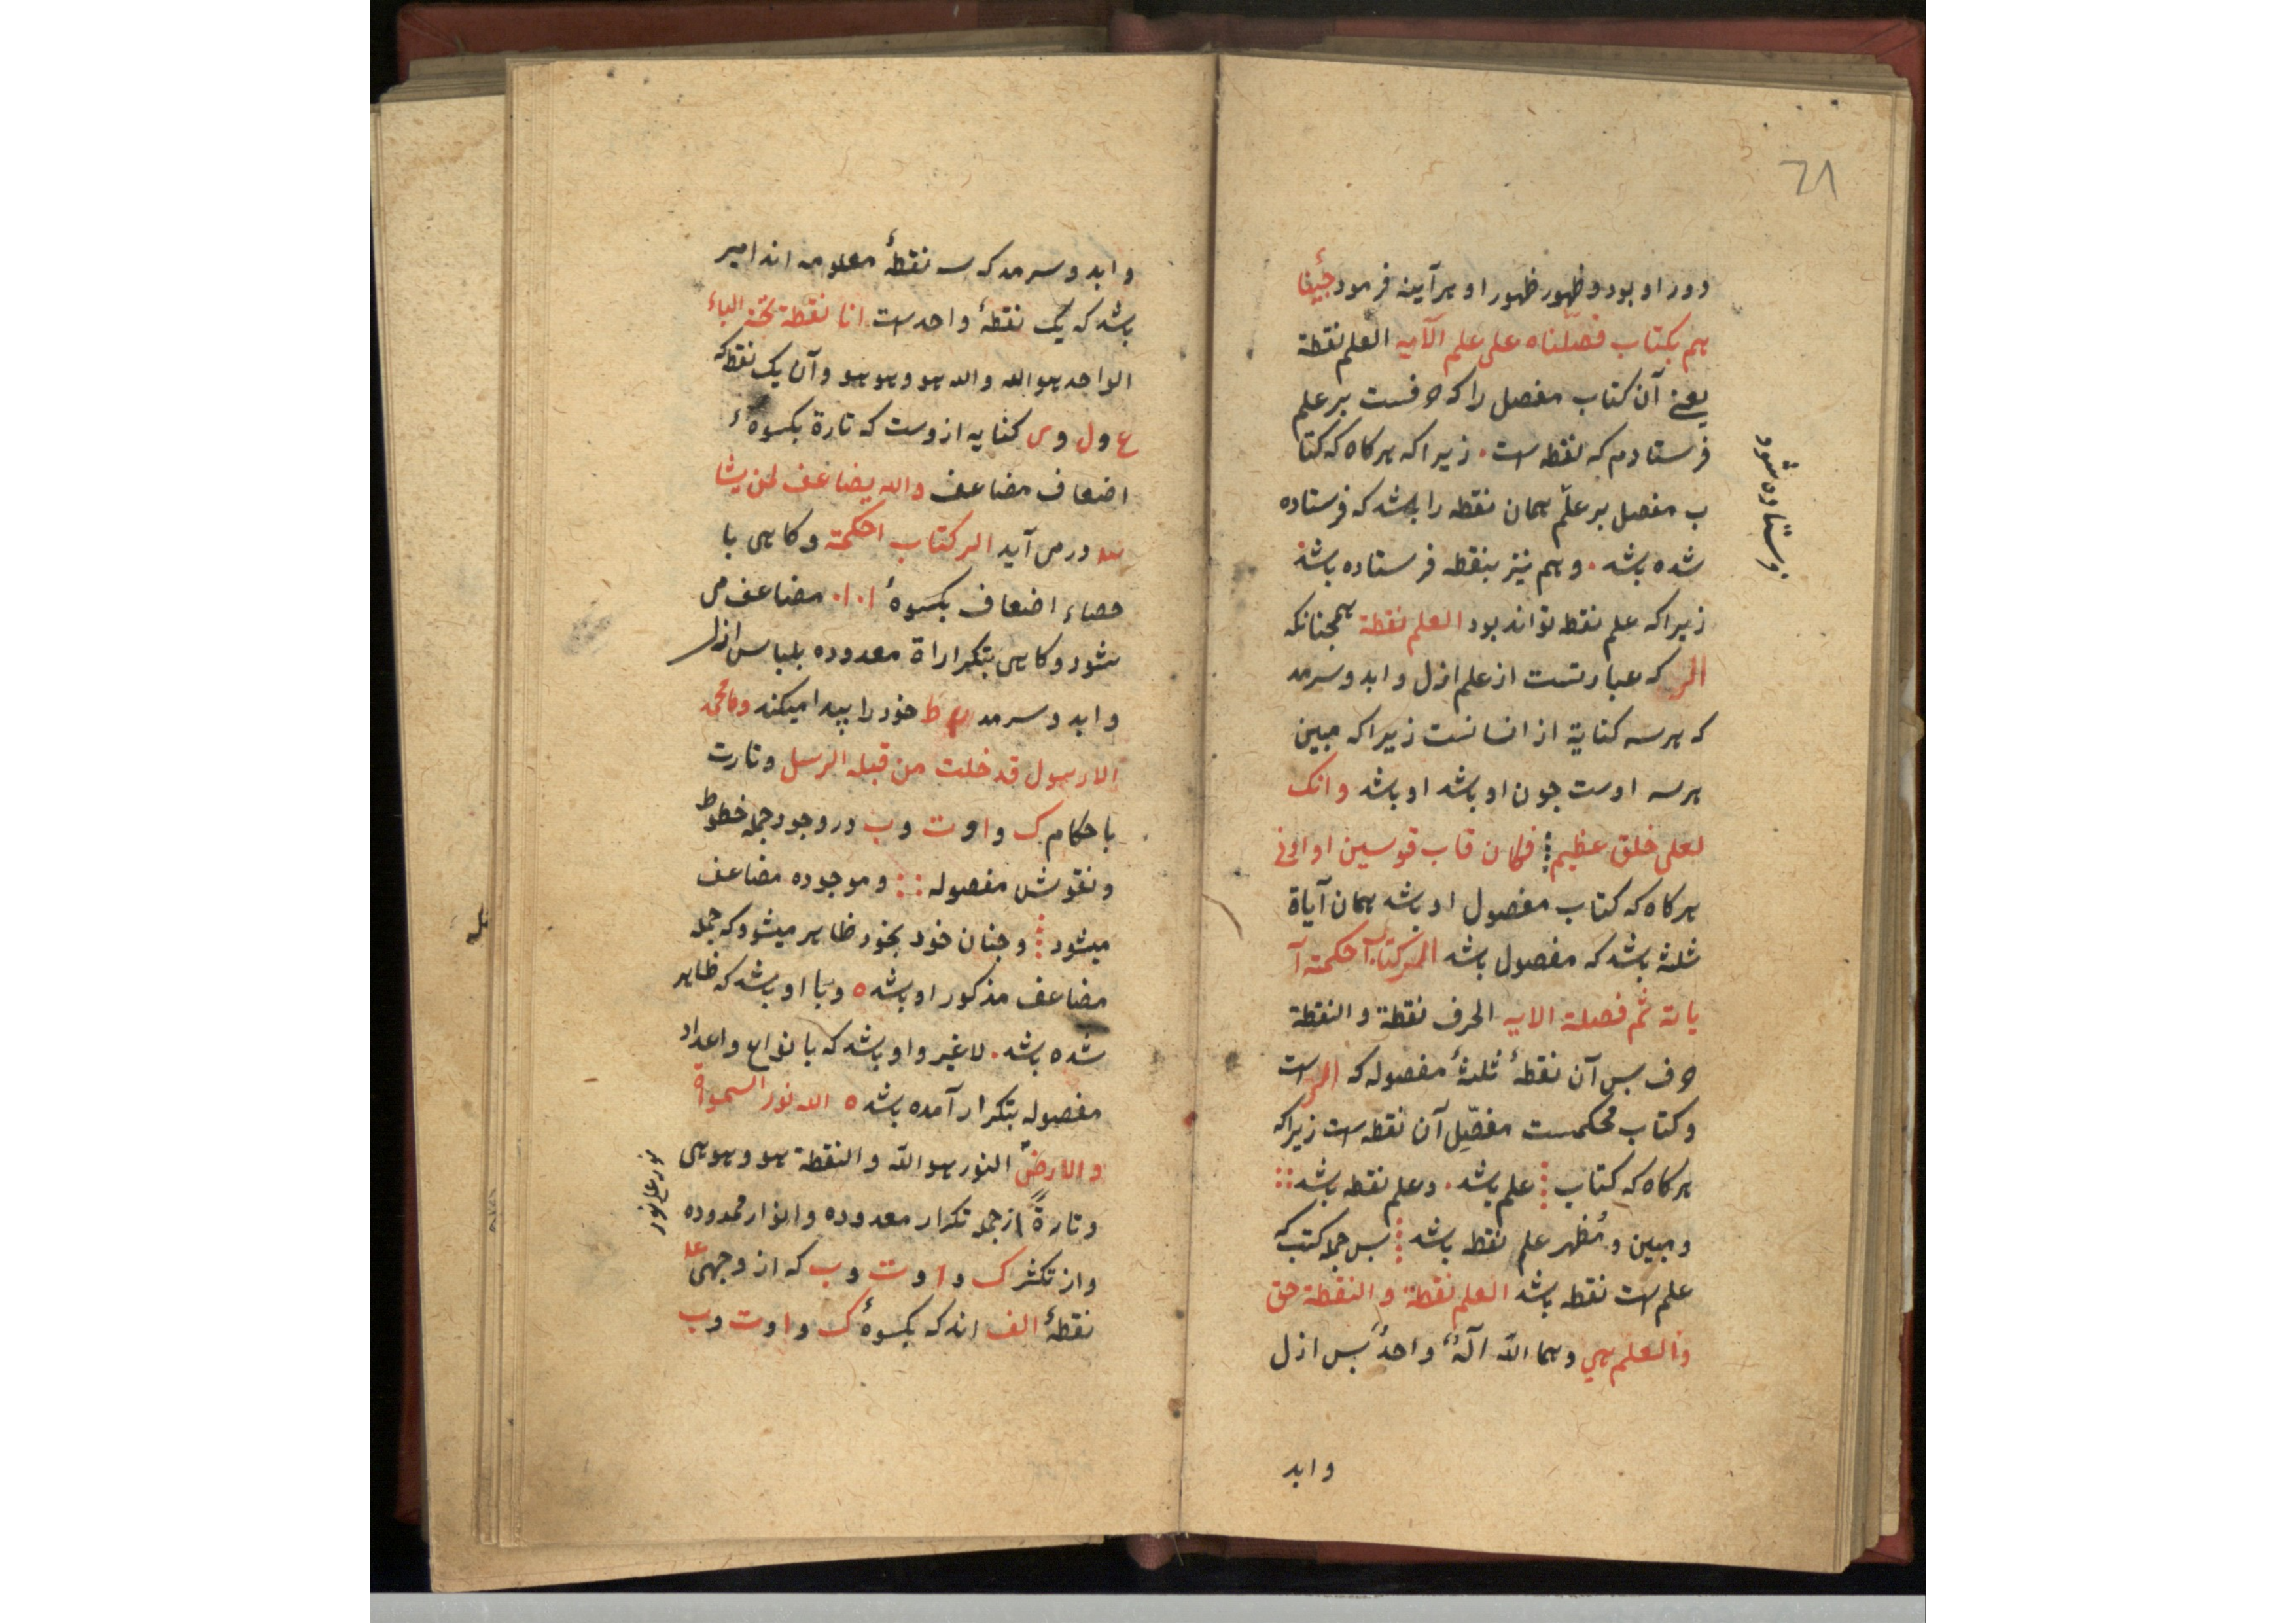 ٦٨
دور او بود و ظهور ظهور او هرآینه فرمود جئنا
هم بکتاب فصلناه علی علم الآیه العلم نقطة
یعنے آن کتاب مفصل را که حرفست بر علم
فرستادم که نقطه است . زیرا که هرکاه که کتا
ب مفصل بر علم همان نقطه را باشد که فرستاده
شده باشد . و هم نیز بنقطه فرستاده باشد
زیرا که علم نقطه تواند بود العلم نقطة همچنانکه
الر که عبارتست از علم ازل و ابد و سرمد
که هر سه کنایة از انسانست زیرا که مبین
هر سه اوست جون او باشد او باشد وانک
لعلی خلق عظیم فکان قاب قوسین او ادنی
هرکاه که کتاب مفصول او باشد همان آیاة
ثلثة باشد که مفصول باشد الر کتاب احکمة آ
یاتة ثم فصلة الایه الحرف نقطة و النقطة
حرف بس آن نقطهٔ ثلثهٔ مفصوله که الر است
و کتاب محکمست مفصّلِ آن نقطه است زیرا که
هرکاه که کتاب علم باشد . و علم نقطه باشد
و مبین و مُظهر علم نقطه باشد بس جمله کتب که
علم است نقطه باشد العلم نقطة و النقطة حق
والعلم هي وهما اللّه آلهٌ واحدٌ بس ازل
وابد
فرستاده شود
وابد و سرمد که سه نقطهٔ معلومه اند امیر
باشد که یک نقطهٔ واحد است انا نقطة تحت الباء
الواحد هو الله والله هو وهو هو وآن یک نقطه که
ع و ل و ی کنایه ازوست که تارة بکسوهٔ
اضعاف مضاعف والله یضاعف لمن یشا
در می آید الر کتاب احکمة وکاهی با
حصاء اضعاف بکسوهٔ ا۰ا۰ مضاعف می
شود و کاهی بتکراراة معدوده بلباس ازل
و ابد و سرمد خود را پیدا میکند وما محمد
الا رسول قد خلت من قبله الرسل وتارت
با حکام ک و ا و ت و ب در وجود جمله خطوط
و نقوش مفصوله و موجوده مضاعف
میشود و جنان خود بخود ظاهر میشود که جمله
مضاعف مذکور او باشد ه و با او باشد که ظاهر
شده باشد . لاغیر و او باشد که با نواع و اعداد
مفصوله بتکرار آمده باشد ه الله نور السموة
والارض النور هو اللّه و النقطة هو وهو هی
و تارةً از جمله تکرار معدوده و انوار محدوده
و از تکثر ک و ا و ت و ب که از وجهی
نقطهٔ الف اند که بکسوهٔ ک و ا و ت و ب
نور علی نور